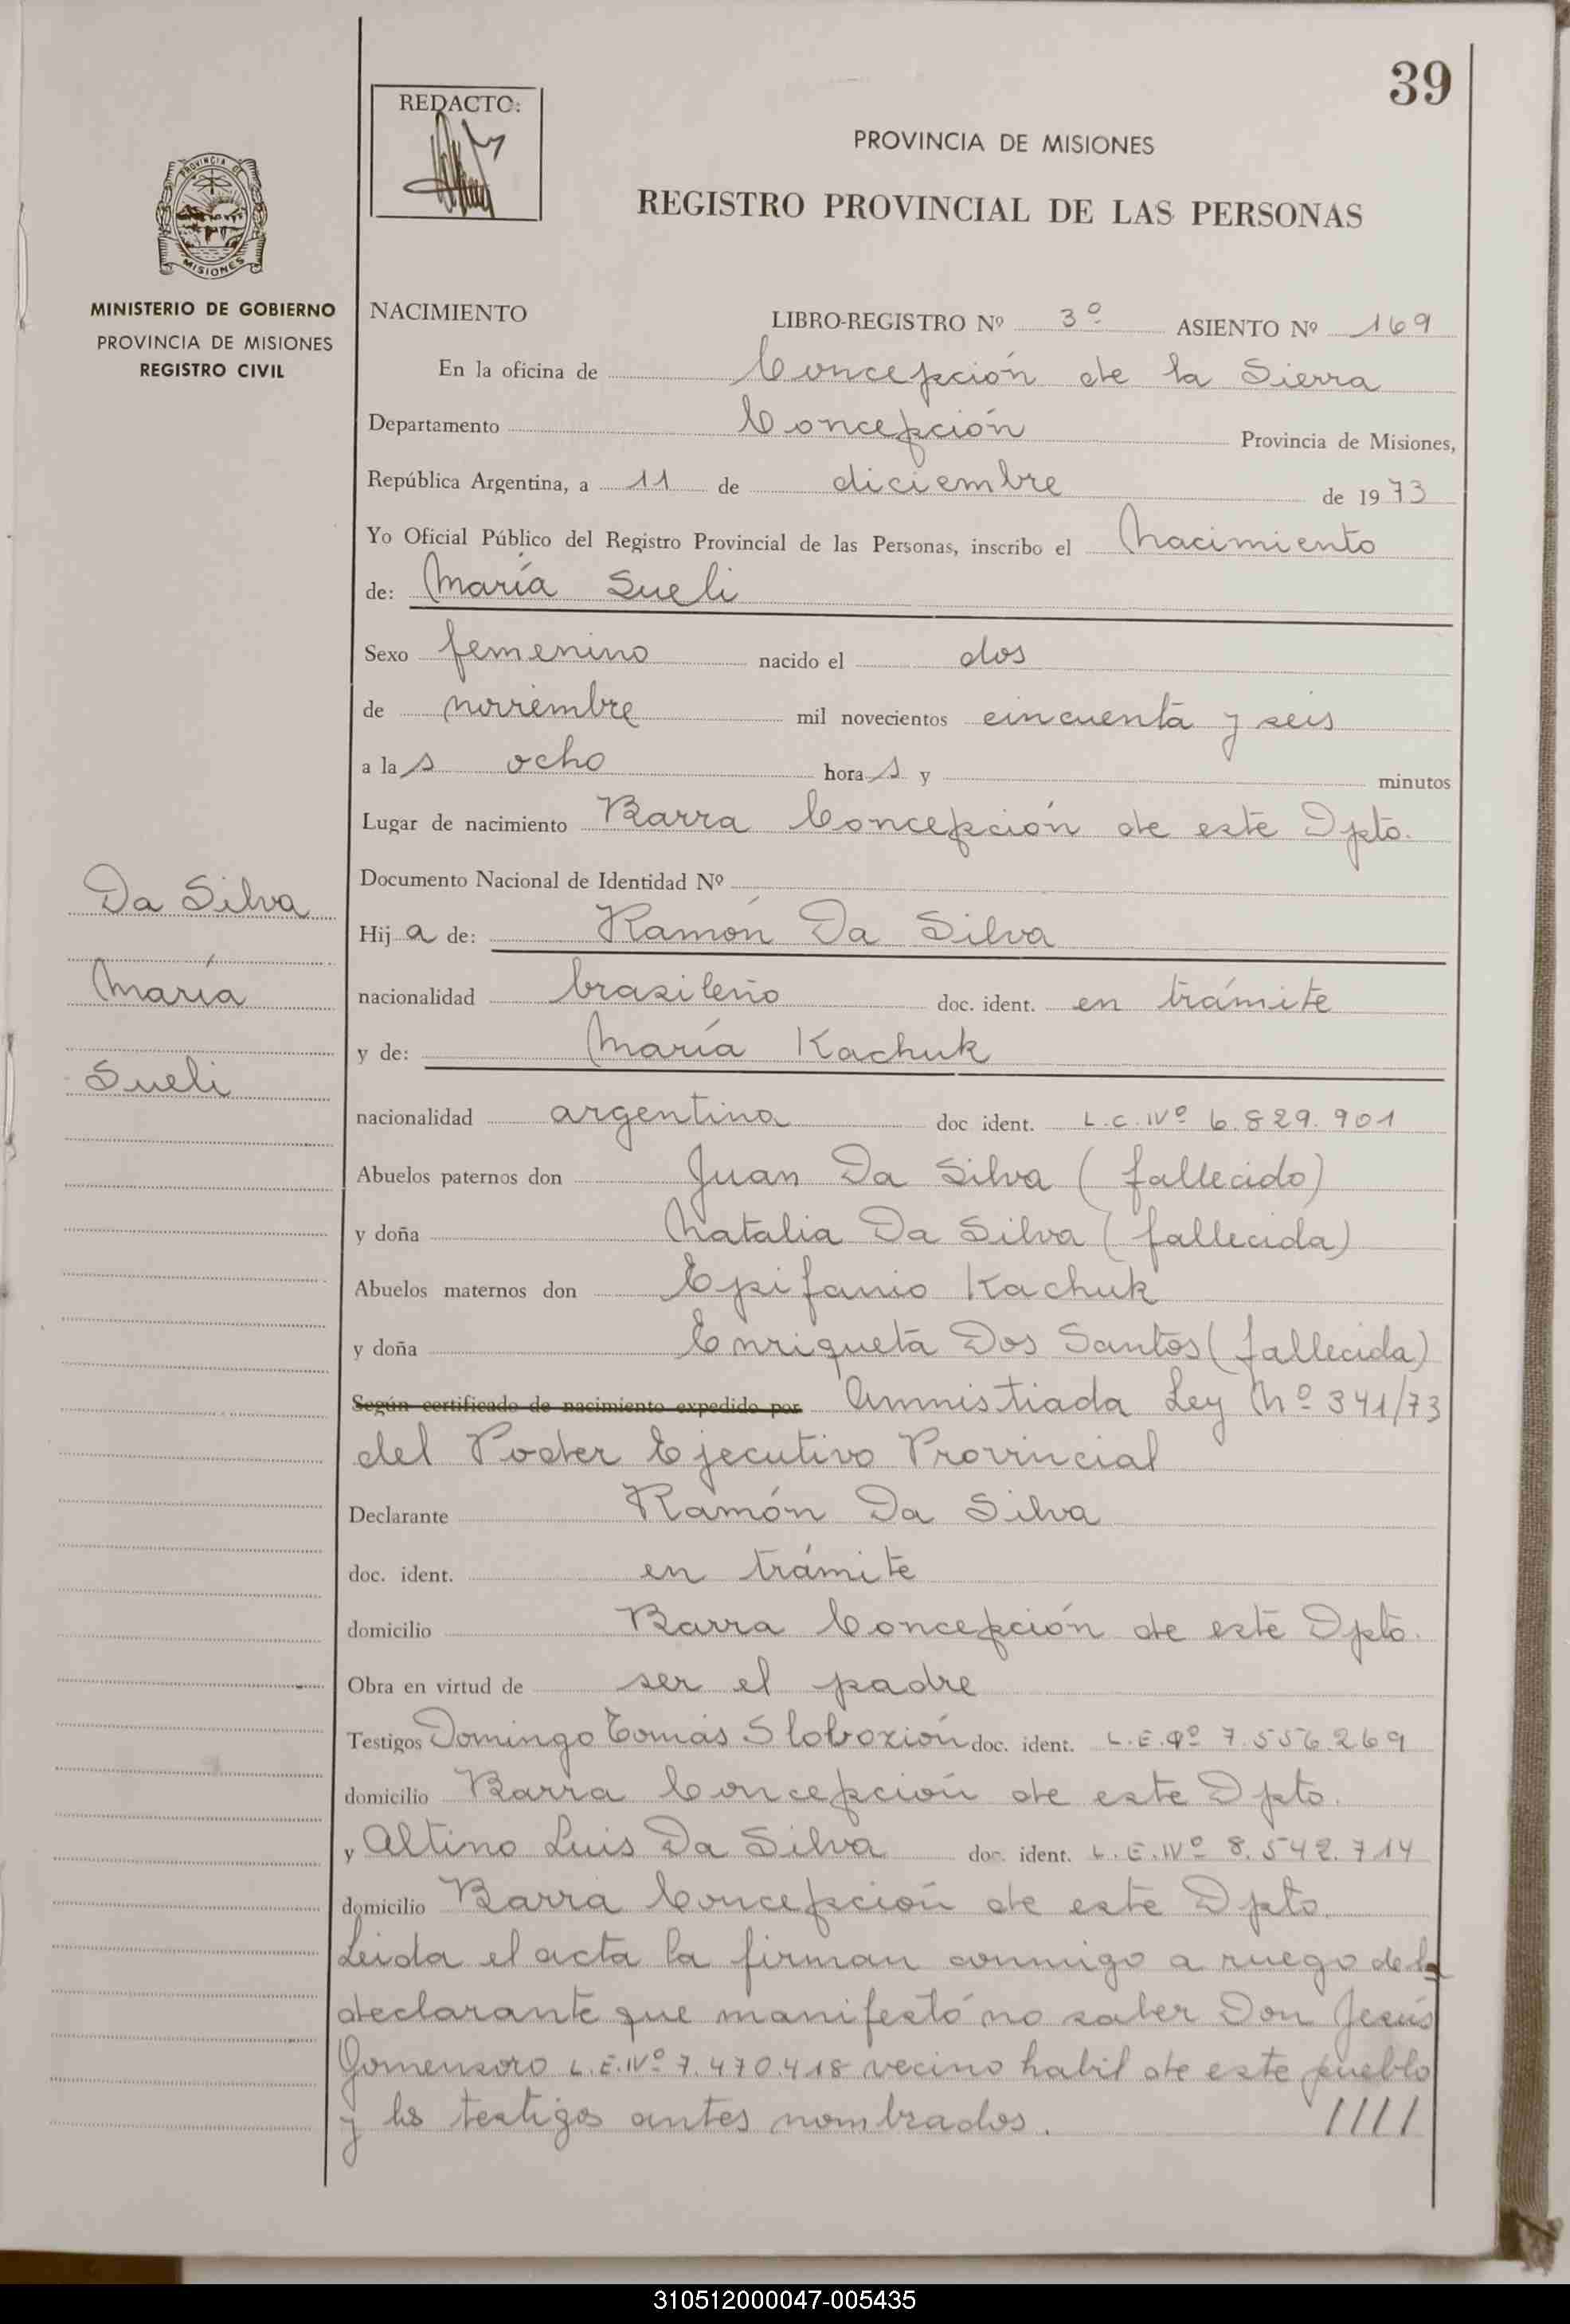 39
REDACTO:
PROVINCIA DE MISIONES
REGISTRO PROVINCIAL DE LAS PERSONAS
PROVINCIA DE
MISIONES
MINISTERIO DE GOBIERNO
PROVINCIA DE MISIONES
REGISTRO CIVIL
Da Silva
María
Sueli
NACIMIENTO LIBRO-REGISTRO Nº 3º ASIENTO Nº 169
En la oficina de Concepción de la Sierra
Departamento Concepción Provincia de Misiones,
República Argentina, a 11 de diciembre de 1973
Yo Oficial Público del Registro Provincial de las Personas, inscribo el Nacimiento
de: María Sueli
Sexo femenino nacido el dos
de noviembre mil novecientos cincuenta y seis
a las ocho horas y minutos
Lugar de nacimiento Barra Concepción de este Dpto.
Documento Nacional de Identidad Nº
Hija de: Ramón Da Silva
nacionalidad brasileño doc. ident. en trámite
y de: María Kachuk
nacionalidad argentina doc ident. L.C.Nº 6.829.901
Abuelos paternos don Juan Da Silva (fallecido)
y doña Natalia Da Silva (fallecida)
Abuelos maternos don Epifanio Kachuk
y doña Enriqueta Dos Santos (fallecida)
Según certificado de nacimiento expedido por Amnistiada Ley Nº 341/73
del Poder Ejecutivo Provincial
Declarante Ramón Da Silva
doc. ident. en trámite
domicilio Barra Concepción de este Dpto.
Obra en virtud de ser el padre
Testigos Domingo Tomás Slobozión doc. ident. L.E.Nº 7.556.269
domicilio Barra Concepción de este Dpto.
y Altino Luis Da Silva doc. ident. L.E.Nº 8.542.714
domicilio Barra Concepción de este Dpto.
Leida el acta la firman conmigo a ruego del
declarante que manifestó no saber Don Jesús
Gomensoro L.E.Nº 7.470.418 vecino habil de este pueblo
y los testigos antes nombrados. ////
310512000047-005435